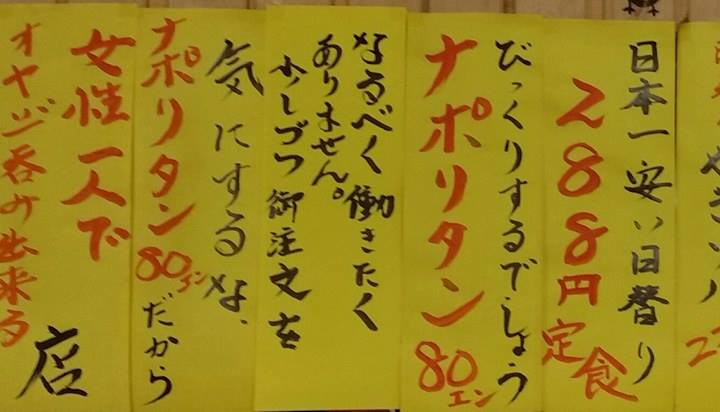 日本一安い日替り
288円
定食
びっくりするでしょう
ナポリタン80エン
なるべく働きたく
ありません。
少しづつ御注文を
気にするな、
ナポリタン80エンだから
女性一人で
オヤジ呑み出来る
店